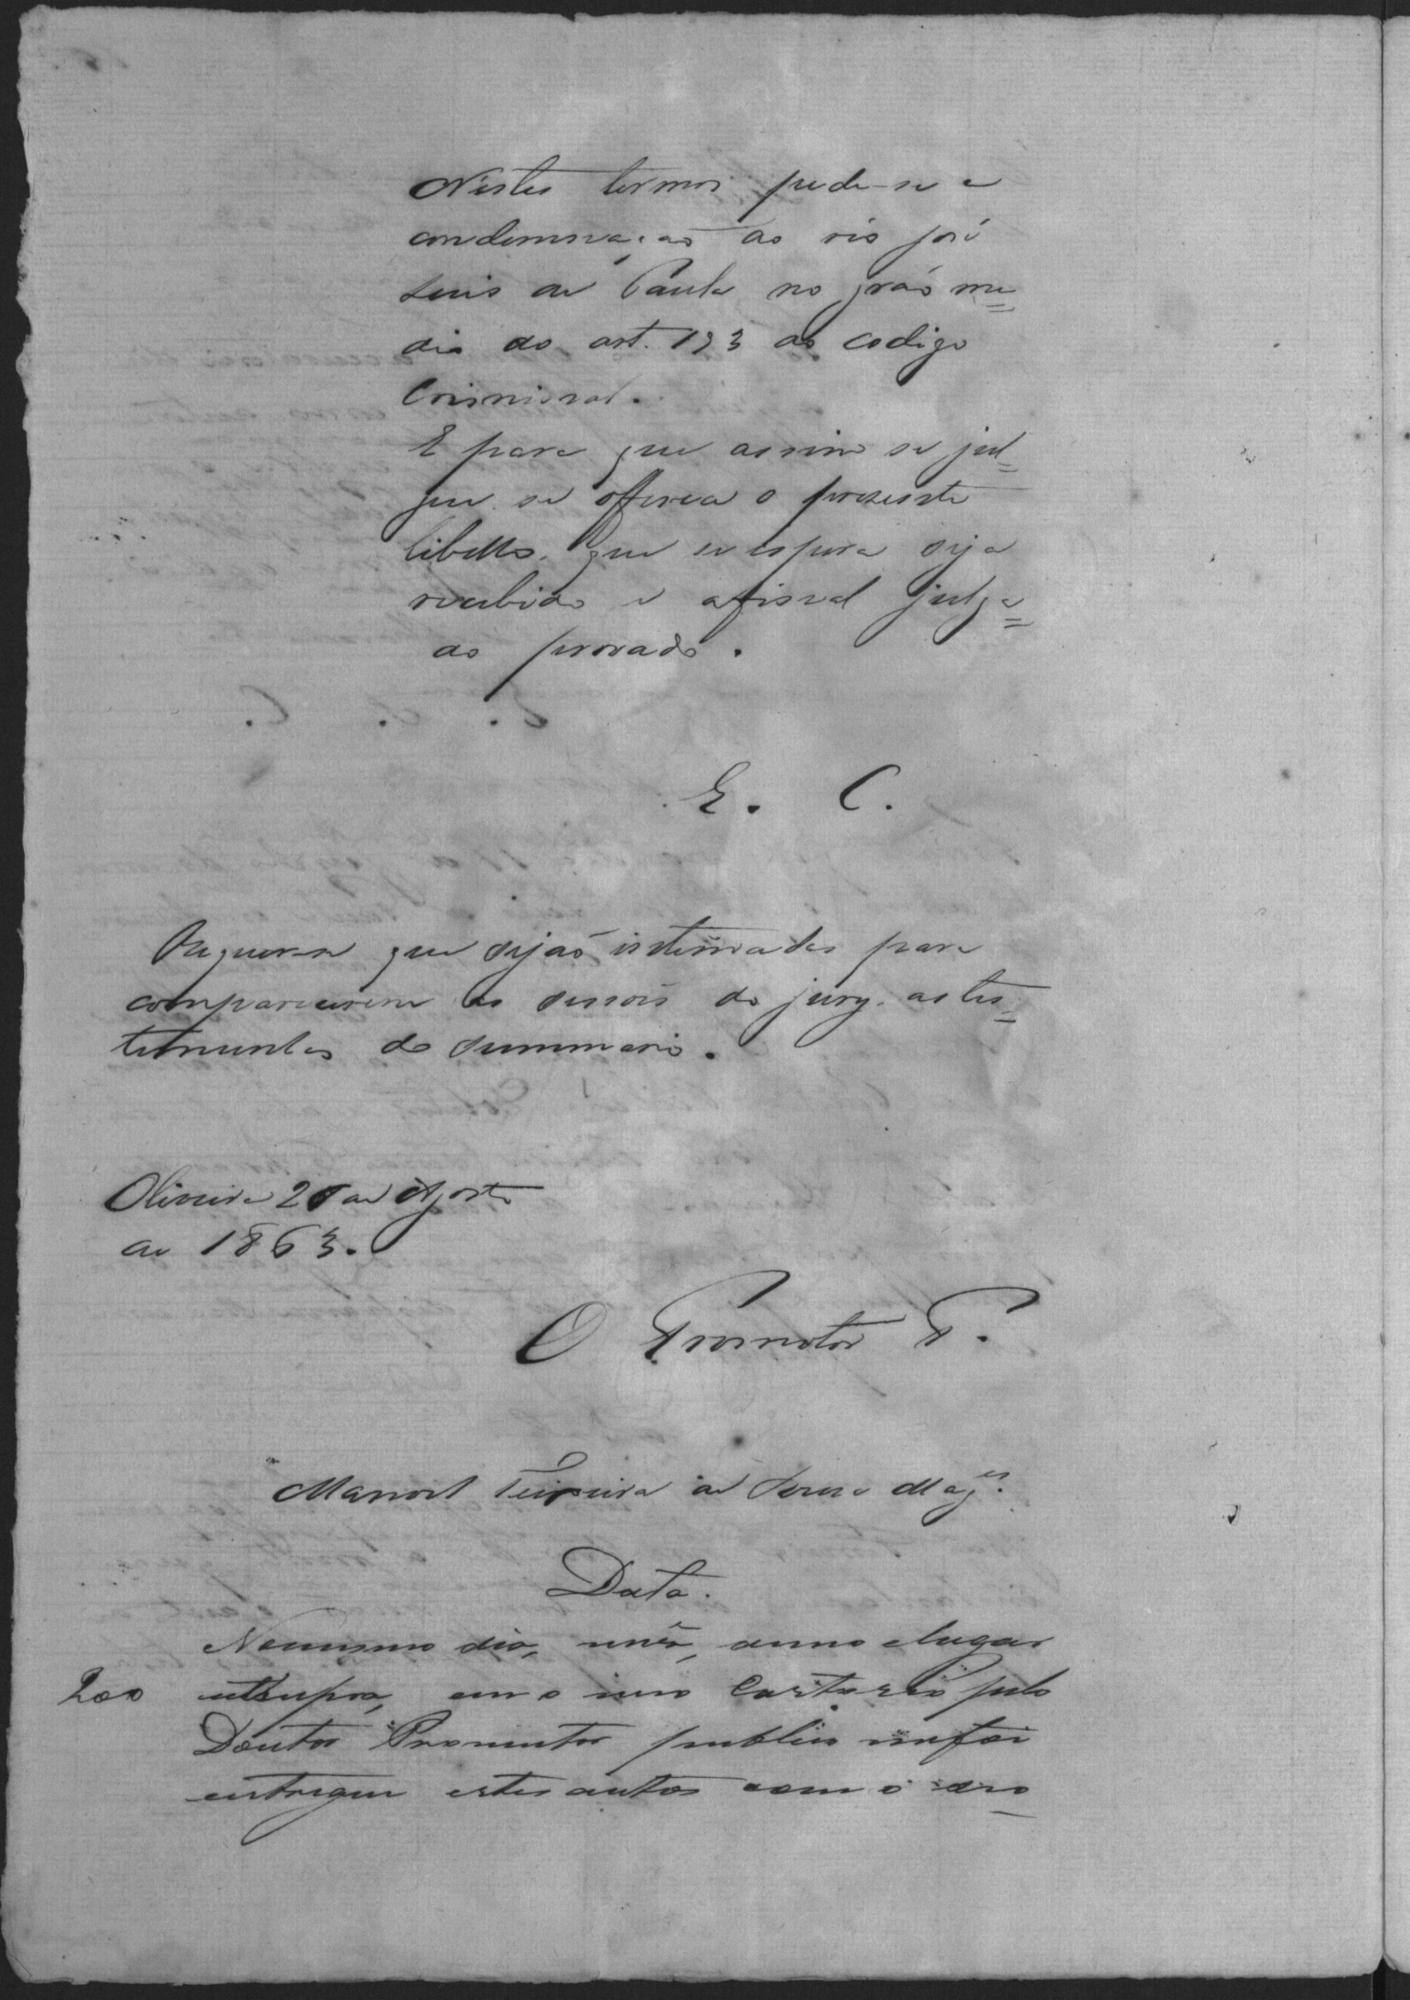 Nestes termos pede-se a
condemnação do réo José
Luis de Paula no gráo me=
dio do art. 193 do codigo
Criminal.
E para que assim se jul=
gue se offerece o presente
libello, que se espera seja
recebido e afinal julga=
do provado.
E. C.
Requer-se que sejão intimadas para
comparecerem as sessois do jury, as tes=
temunhas do summario.
Oliveira 25 de Agosto
de 1863.
O Promotor P.
Manoel Teixeira de Souza Mag.es
Data.
No mesmo dia, mês, anno e lugar
200 utsupra, em o meu Cartorio pelo
Doutor Promutor publico me foi
entregue estes autos com o